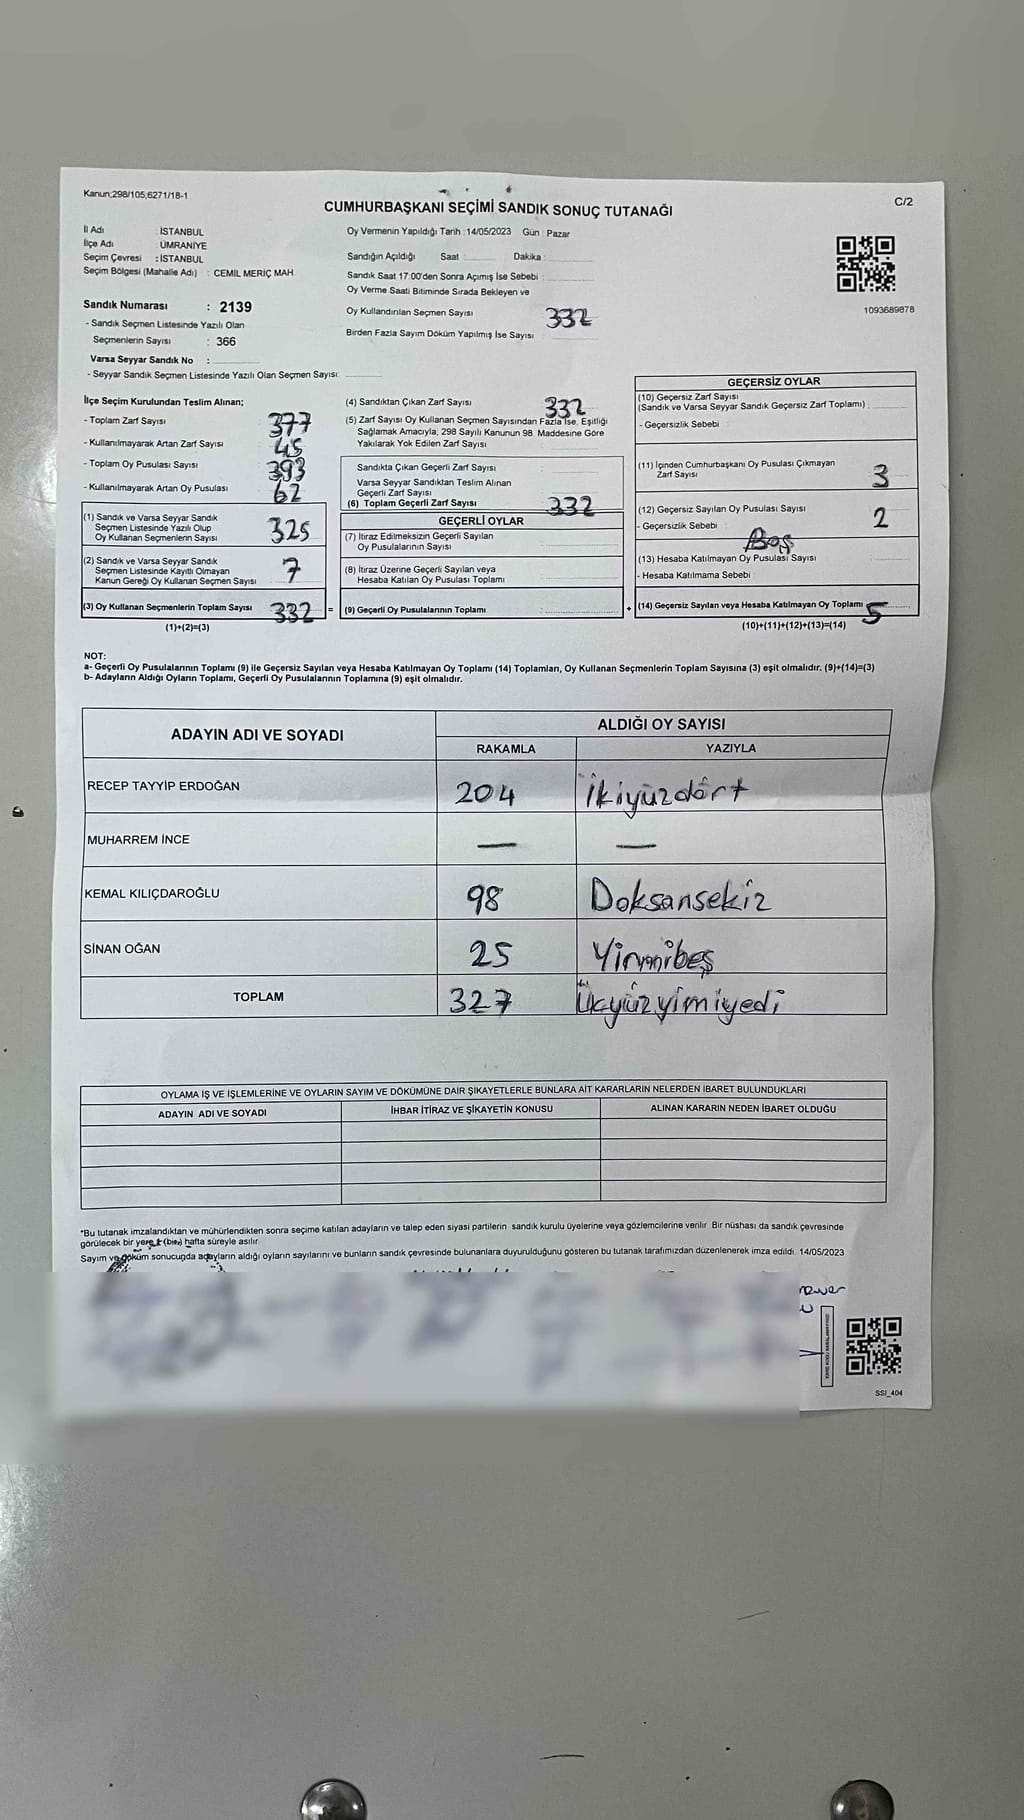 Kanun;298/105,6271/18-1
C/2
CUMHURBAŞKANI SEÇİMİ SANDIK SONUÇ TUTANAĞI
İl Adı : İSTANBUL
İlçe Adı : ÜMRANİYE
Seçim Çevresi : İSTANBUL
Seçim Bölgesi (Mahalle Adı) : CEMİL MERİÇ MAH.
Sandık Numarası : 2139
- Sandık Seçmen Listesinde Yazılı Olan
Seçmenlerin Sayısı : 366
Varsa Seyyar Sandık No :
- Seyyar Sandık Seçmen Listesinde Yazılı Olan Seçmen Sayısı:
Oy Vermenin Yapıldığı Tarih : 14/05/2023 Gün : Pazar
Sandığın Açıldığı Saat : Dakika :
Sandık Saat 17:00'den Sonra Açımış İse Sebebi :
Oy Verme Saati Bitiminde Sırada Bekleyen ve
Oy Kullandırılan Seçmen Sayısı 332
Birden Fazla Sayım Döküm Yapılmış İse Sayısı
1093689878
İlçe Seçim Kurulundan Teslim Alınan;
- Toplam Zarf Sayısı 377
- Kullanılmayarak Artan Zarf Sayısı 45
- Toplam Oy Pusulası Sayısı 393
- Kullanılmayarak Artan Oy Pusulası 62
(1) Sandık ve Varsa Seyyar Sandık
Seçmen Listesinde Yazılı Olup
Oy Kullanan Seçmenlerin Sayısı 325
(2) Sandık ve Varsa Seyyar Sandık
Seçmen Listesinde Kayıtlı Olmayan
Kanun Gereği Oy Kullanan Seçmen Sayısı 7
(3) Oy Kullanan Seçmenlerin Toplam Sayısı 332 =
(1)+(2)=(3)
(4) Sandıktan Çıkan Zarf Sayısı 332
(5) Zarf Sayısı Oy Kullanan Seçmen Sayısından Fazla İse, Eşitliği
Sağlamak Amacıyla, 298 Sayılı Kanunun 98. Maddesine Göre
Yakılarak Yok Edilen Zarf Sayısı
Sandıkta Çıkan Geçerli Zarf Sayısı
Varsa Seyyar Sandıktan Teslim Alınan
Geçerli Zarf Sayısı
(6) Toplam Geçerli Zarf Sayısı 332
GEÇERLİ OYLAR
(7) İtiraz Edilmeksizin Geçerli Sayılan
Oy Pusulalarının Sayısı
(8) İtiraz Üzerine Geçerli Sayılan veya
Hesaba Katılan Oy Pusulası Toplamı
(9) Geçerli Oy Pusulalarının Toplamı : +
GEÇERSİZ OYLAR
(10) Geçersiz Zarf Sayısı
(Sandık ve Varsa Seyyar Sandık Geçersiz Zarf Toplamı) :
- Geçersizlik Sebebi
(11) İçinden Cumhurbaşkanı Oy Pusulası Çıkmayan
Zarf Sayısı 3
(12) Geçersiz Sayılan Oy Pusulası Sayısı 2
- Geçersizlik Sebebi : Boş
(13) Hesaba Katılmayan Oy Pusulası Sayısı
- Hesaba Katılmama Sebebi
(14) Geçersiz Sayılan veya Hesaba Katılmayan Oy Toplamı 5
(10)+(11)+(12)+(13)=(14)
NOT:
a- Geçerli Oy Pusulalarının Toplamı (9) ile Geçersiz Sayılan veya Hesaba Katılmayan Oy Toplamı (14) Toplamları, Oy Kullanan Seçmenlerin Toplam Sayısına (3) eşit olmalıdır. (9)+(14)=(3)
b- Adayların Aldığı Oyların Toplamı, Geçerli Oy Pusulalarının Toplamına (9) eşit olmalıdır.
ADAYIN ADI VE SOYADI ALDIĞI OY SAYISI
RAKAMLA YAZIYLA
RECEP TAYYİP ERDOĞAN 204 İkiyüzdört
MUHARREM İNCE — —
KEMAL KILIÇDAROĞLU 98 Doksansekiz
SİNAN OĞAN 25 Yirmibeş
TOPLAM 327 Üçyüzyimiyedi
OYLAMA İŞ VE İŞLEMLERİNE VE OYLARIN SAYIM VE DÖKÜMÜNE DAİR ŞİKAYETLERLE BUNLARA AİT KARARLARIN NELERDEN İBARET BULUNDUKLARI
ADAYIN ADI VE SOYADI İHBAR İTİRAZ VE ŞİKAYETİN KONUSU ALINAN KARARIN NEDEN İBARET OLDUĞU
*Bu tutanak imzalandıktan ve mühürlendikten sonra seçime katılan adayların ve talep eden siyasi partilerin sandık kurulu üyelerine veya gözlemcilerine verilir. Bir nüshası da sandık çevresinde
görülecek bir yere (bir) hafta süreyle asılır.
Sayım ve döküm sonucunda adayların aldığı oyların sayılarını ve bunların sandık çevresinde bulunanlara duyurulduğunu gösteren bu tutanak tarafımızdan düzenlenerek imza edildi. 14/05/2023
SSI_404